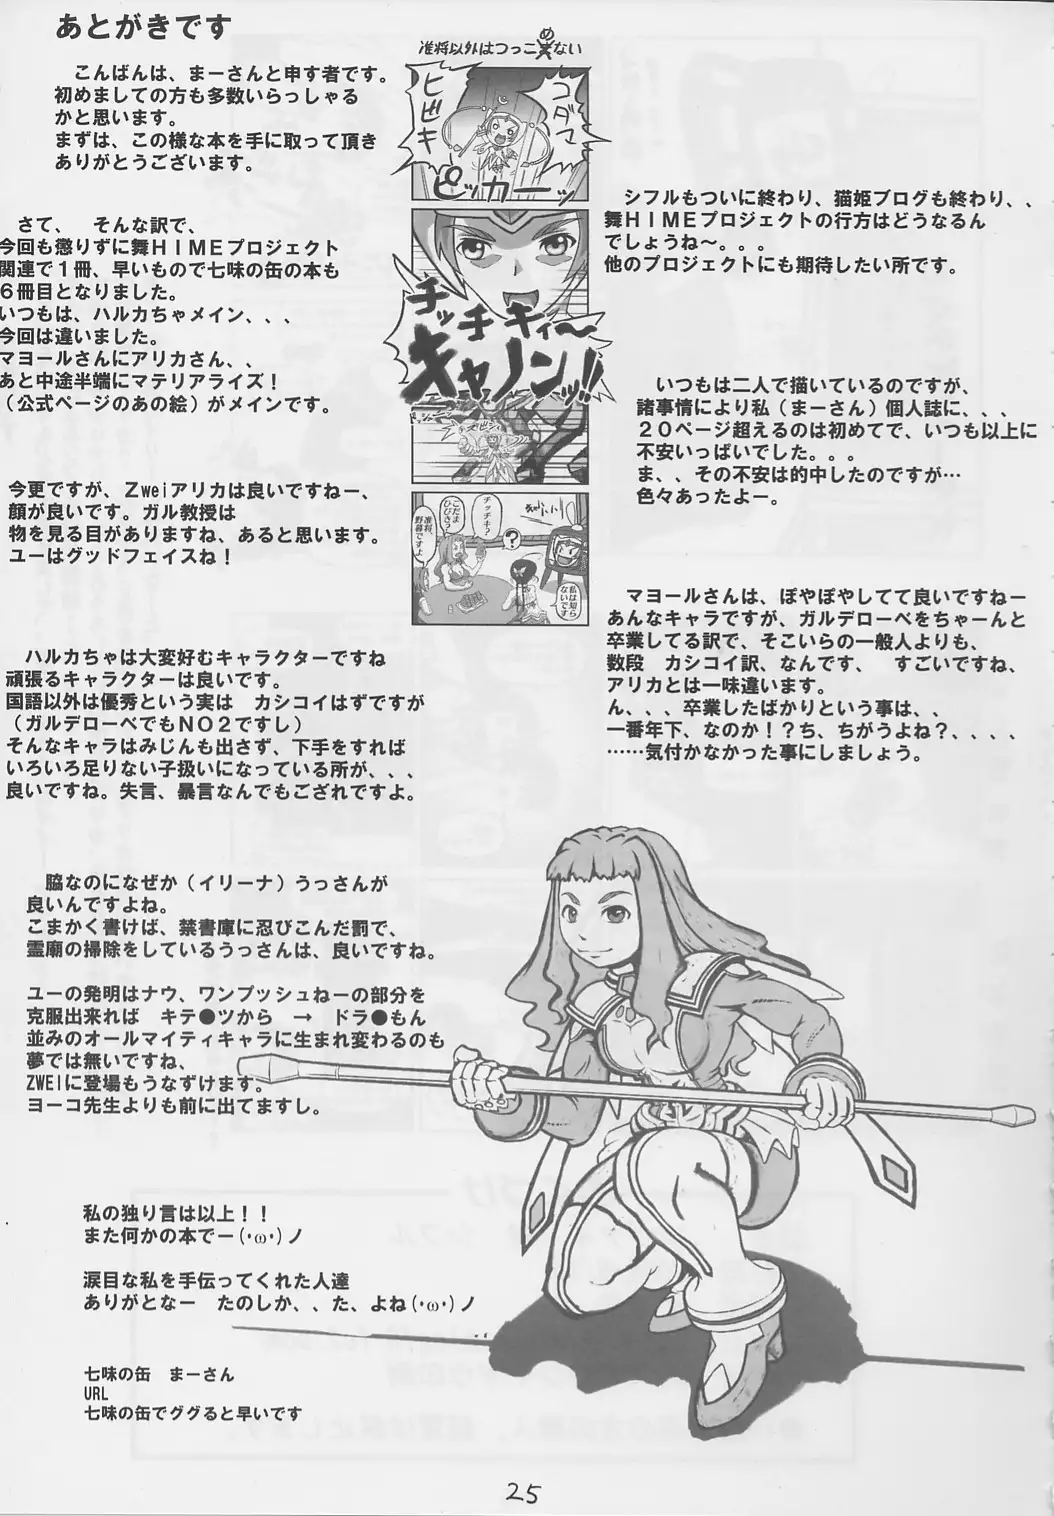 あとがきです
こんばんは、まーさんと申す者です。
初めましての方も多数いらっしゃる
かと思います。
まずは、この様な本を手に取って頂き
ありがとうございます。
さて、 そんな訳で、
今回も懲りずに舞HIMEプロジェクト
関連で1冊、早いもので七味の缶の本も
6冊目となりました。
いつもは、ハルカちゃメイン、、、
今回は違いました。
マヨールさんにアリカさん、、
あと中途半端にマテリアライズ！
（公式ページのあの絵）がメインです。
今更ですが、Zweiアリカは良いですねー、
顔が良いです。ガル教授は
物を見る目がありますね、あると思います。
ユーはグッドフェイスね！
ハルカちゃは大変好むキャラクターですね
頑張るキャラクターは良いです。
国語以外は優秀という実は カシコイはずですが
（ガルデローベでもNO2ですし）
そんなキャラはみじんも出さず、下手をすれば
いろいろ足りない子扱いになっている所が、、、
良いですね。失言、暴言なんでもござれですよ。
脇なのになぜか（イリーナ）うっさんが
良いんですよね。
こまかく書けば、禁書庫に忍びこんだ罰で、
霊廟の掃除をしているうっさんは、良いですね。
ユーの発明はナウ、ワンプッシュねーの部分を
克服出来れば キテ●ツから → ドラ●もん
並みのオールマイティキャラに生まれ変わるのも
夢では無いですね、
ZWEIに登場もうなずけます。
ヨーコ先生よりも前に出てますし。
私の独り言は以上！！
また何かの本でー(･ω･)ノ
涙目な私を手伝ってくれた人達
ありがとなー たのしか、、た、よね(･ω･)ノ
七味の缶 まーさん
URL
七味の缶でググると早いです
准将以外はつっこめない
コダマ
ヒビキ
ピッカーッ
チッチキィ〜
キャノンッ!!
チッチキ？
こだま
ひびき？
准将、
野暮ですよ
？
私は知ら
ないです
シフルもついに終わり、猫姫ブログも終わり、、
舞HIMEプロジェクトの行方はどうなるん
でしょうね〜。。。
他のプロジェクトにも期待したい所です。
いつもは二人で描いているのですが、
諸事情により私（まーさん）個人誌に、、、
20ページ超えるのは初めてで、いつも以上に
不安いっぱいでした。。。
ま、、その不安は的中したのですが…
色々あったよー。
マヨールさんは、ぽやぽやしてて良いですねー
あんなキャラですが、ガルデローベをちゃーんと
卒業してる訳で、そこいらの一般人よりも、
数段 カシコイ訳、なんです、 すごいですね、
アリカとは一味違います。
ん、、、卒業したばかりという事は、、
一番年下、なのか！？ち、ちがうよね？、、、、
……気付かなかった事にしましょう。
25